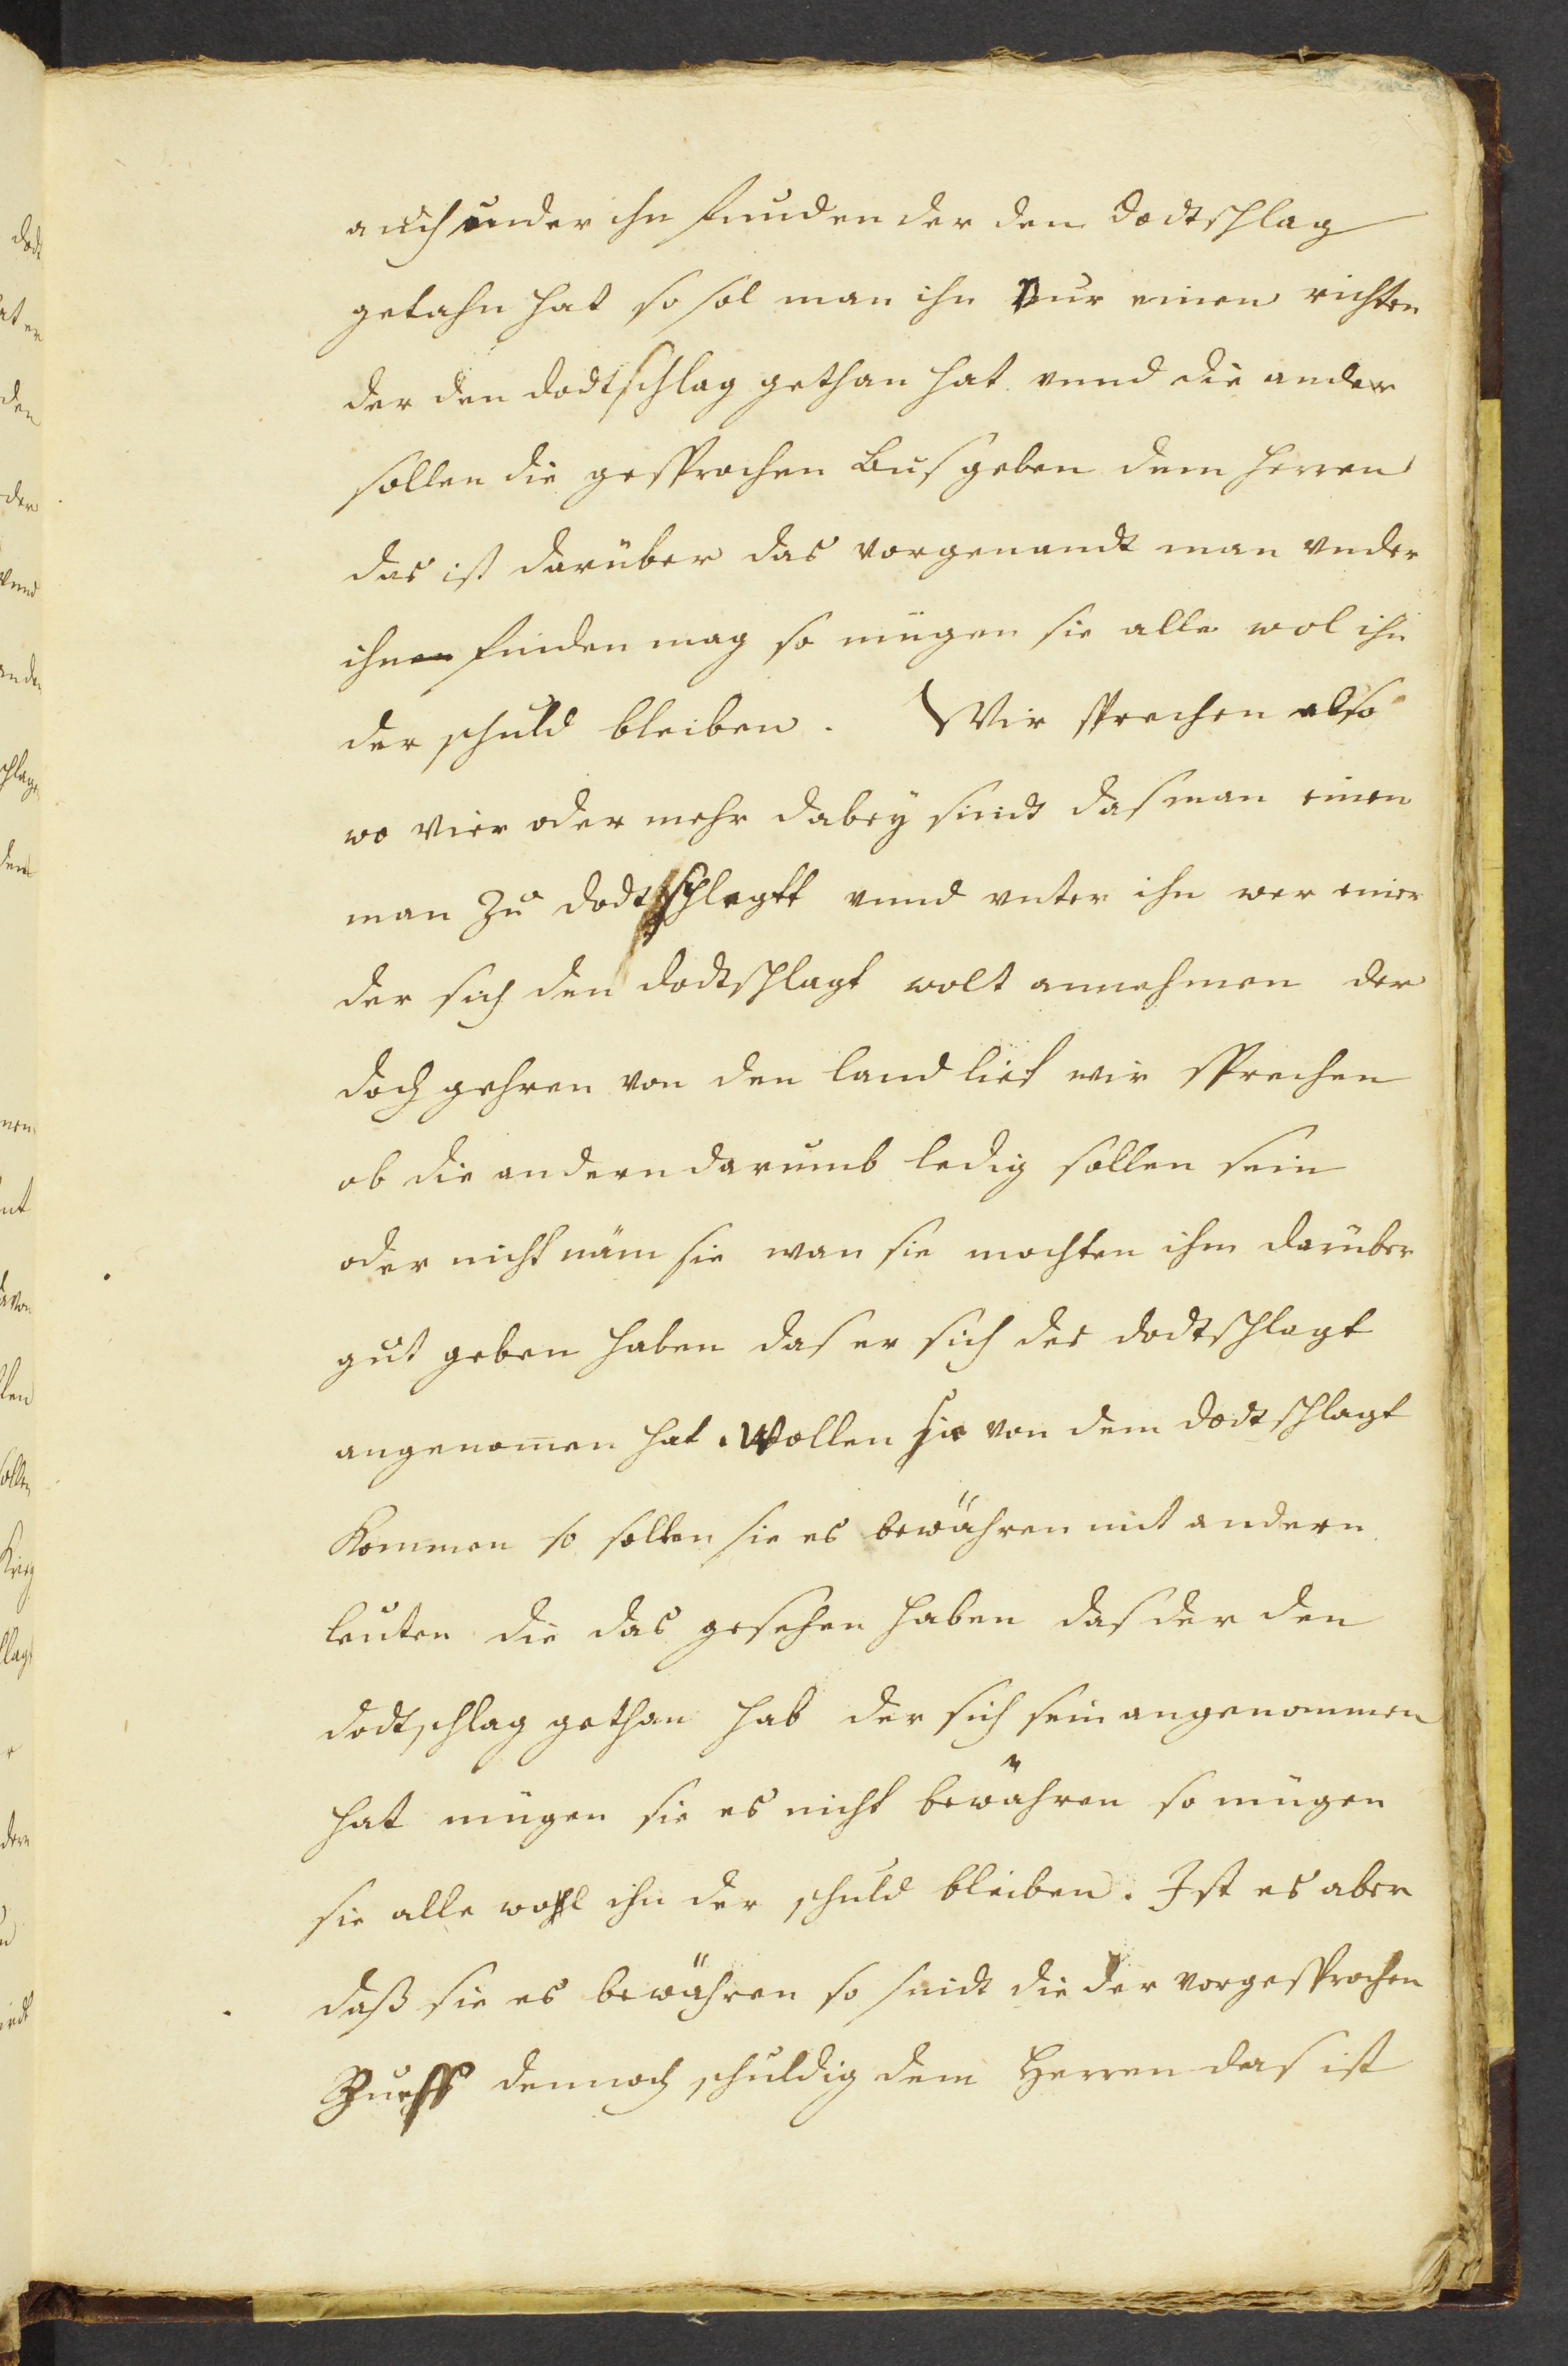 auch under ihn funden der den dodtschlag
getahn hat so sol man ihn nur einen richten
der den dodtschlag gethan hat vnnd die ander
sollen die gesprochen bus geben dem herren
das ist darüber das vorgenandt man vnder
ihnen finden mag so mügen sie alle wol ihn
der schuld bleiben. Wir sprechen also
wo vier oder mehr dabey sindt das man einen
man zu dodt schlagtt vnnd vnter ihn wer einer
der sich den dodtschlagt wolt annehmen der
doch gehren von den land liet wir sprechen
ob die andern darumb ledig sollen sein
oder nicht näm sie wan sie mochten ihm darüber
gut geben haben das er sich des dodtschlagt
angenomen hat. Wollen sie von dem dodtschlagt
Kommen so sollen sie es bewähren mit andern
leuten die das gesehen haben das der den
dodtschlag gethan hab der sich sein angenommen
hat mügen sie es nicht bewähren so mügen
sie alle wohl ihn der schuld bleiben. Ist es aber
daß sie es bewähren so sindt die der vorgesprochen
Buess dennoch schuldig dem Herren das ist